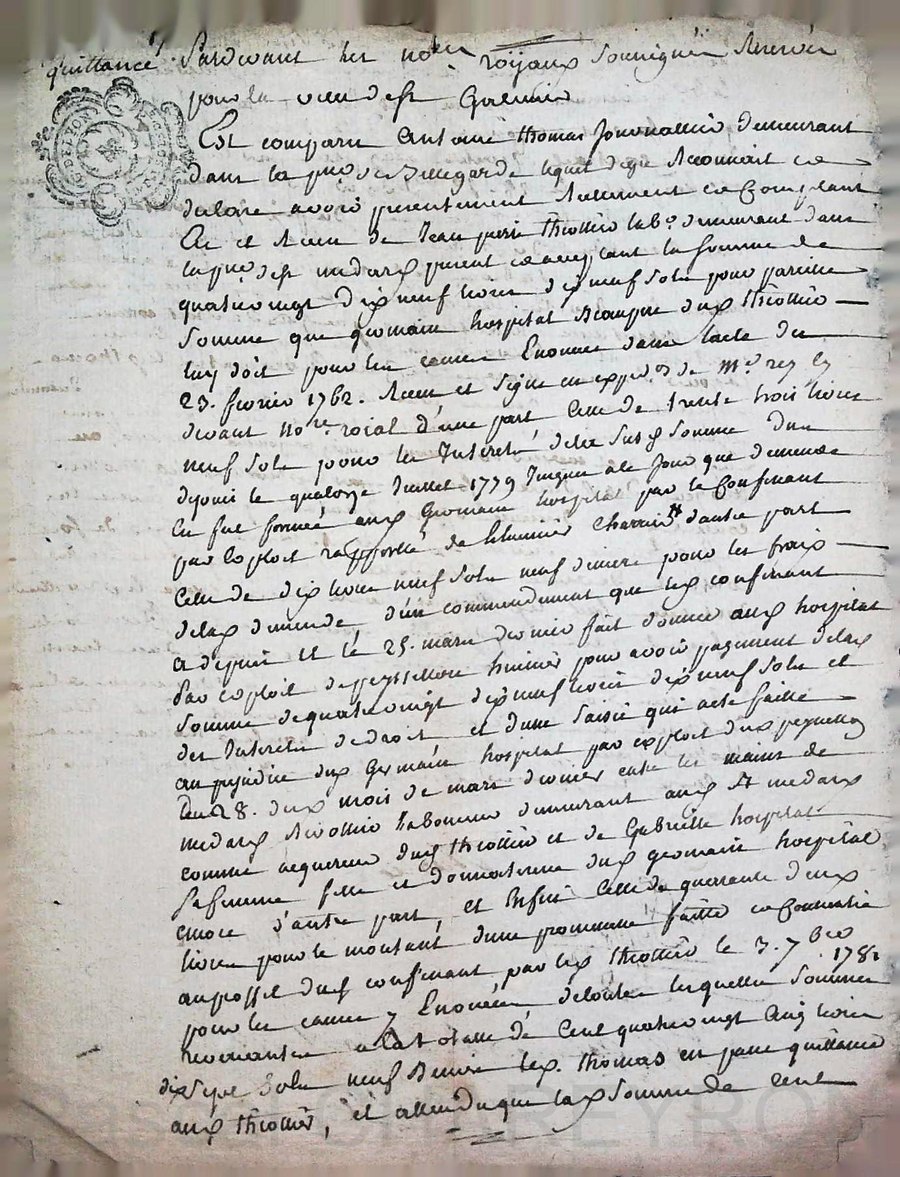 quittance
Pardevant les no.res royaux soussignés reservés
pour la ville de St Galmier
Est comparu Antoine thomas journallier demeurant
dans la p.sse de Bellegarde lequel de gré reconnait et
declare avoir presentement reellement et Comptant
eu et receu de Jean pierre thiollier lab.r demeurant dans
la p.sse de St medard present et acceptant la somme de
quatrevingt dix neuf livres dix neuf sols pour pareille
somme que germain hospital beaupere dud. thiollier
luy doit pour les causes Enoncées dans lacte du
23. fevrier 1762. receu et signé en expéd.on de M.e rey
devant no.re roial d'une part Celle de trente trois livres
neuf sols pour les Interets de lad. susd. somme du
depuis le quatorze Juillet 1779 Jusques a le Jour que demande
en fut formée aud. Germain hospital par le Confessant
par Exploit rapporté de l'huissier Charrin d'autre part
Celle de dix livres neuf sols neuf deniers pour les fraix
delad. demande d'un commendement que led. confessant
a depuis et le 25. mars dernier fait donner aud. hospital
par exploit de peyssellon huissier pour avoir payement delad.
somme de quatrevingt dix neuf livres dix neuf sols et
des Interets de droit et d'une saisie qui a eté faitte
au prejudice dud. Germain hospital par exploit dud. peyssellon
du 28. dud. mois de mars dernier entre les mains de
medard laboureur demeurant aud. St medard
comme acquereur dud. thiollier et de Gabrielle hospital
sa femme fille et donnataire dud. germain hospital,
encore d'autre part, et Enfin Celle de quarante deux
livres pour le montant d'une promesse faitte et
au proffit dud. confessant par led. thiollier le 3. 7bre 178
pour les causes y Enoncées lesquelles sommes
revenantes a la totalle de Cent quatrevingt Cinq livres
dix sept sols neuf deniers led. thomas en passe quittance
aud. thiollier, et attendu que lad. somme de Cent